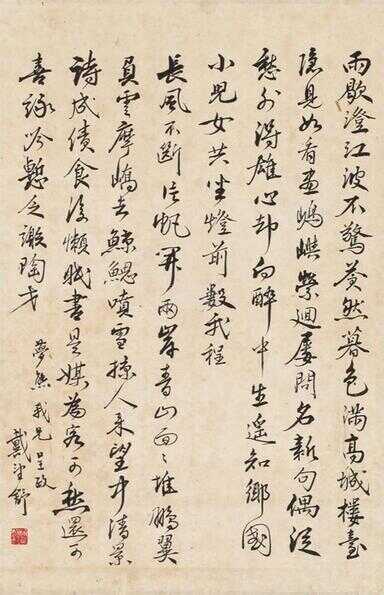 雨歇澄江波不驚蒼然暮色滿高城樓臺
隱見如看畫嶋嶼縈迴屢問名新句偶從
愁外得雄心却向醉中生遙知鄉國
小兒女共坐燈前數我程
長風不斷片帆開兩岸青山面々堆鵬翼
負雲摩嶠去鯨鰓噴雪掠人來望中清景
詩成債食後懶眠書是媒為客可愁還可
喜詠吟慙乏謝陶才
夢 我兄呈政
戴望舒